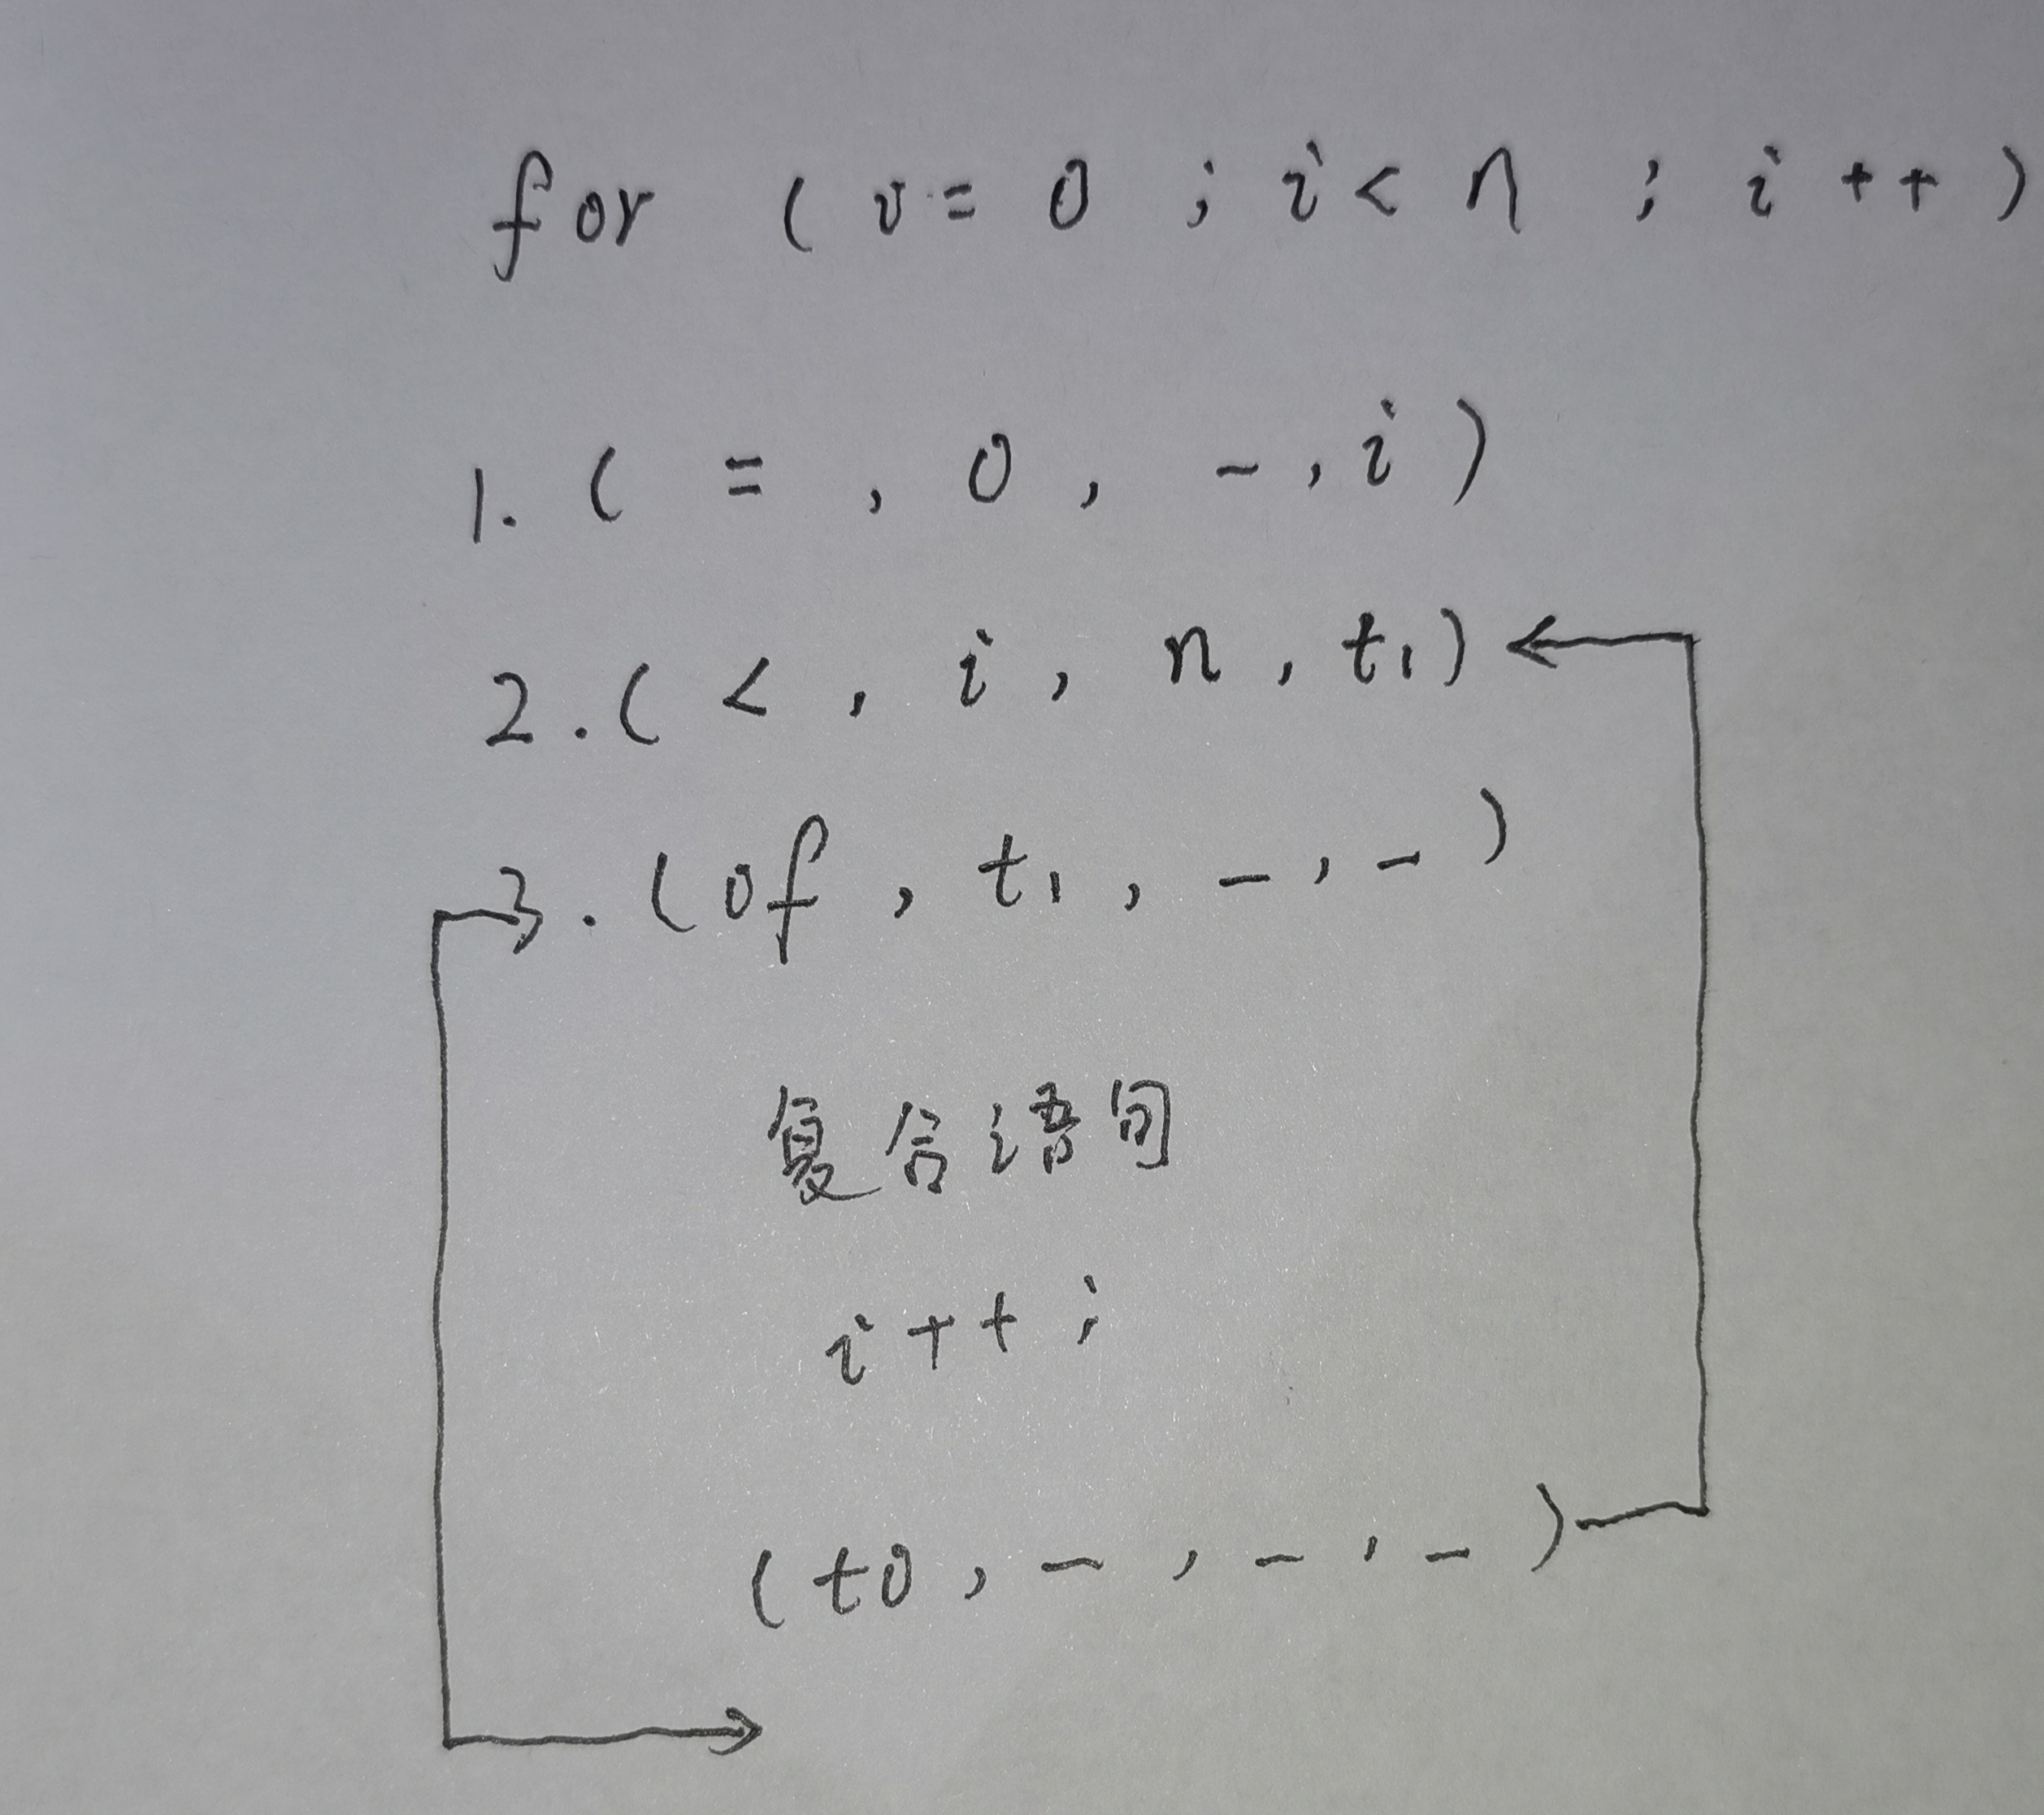 for (i = 0 ; i < n ; i ++ )
1. ( = , 0 , - , i )
2. ( < , i , n , t₁ )
3. ( of , t₁ , - , - )
复合语句
i ++ ;
( to , - , - , - )